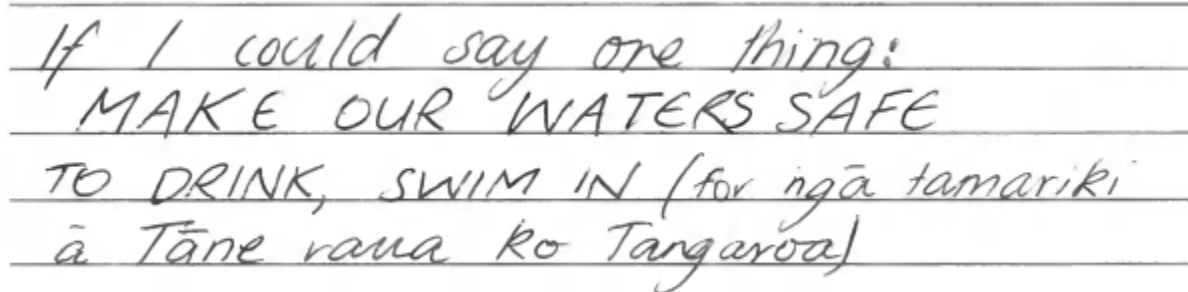 If I could say one thing:
MAKE OUR WATERS SAFE
TO DRINK, SWIM IN (for ngā tamariki
ā Tāne raua ko Tangaroa)